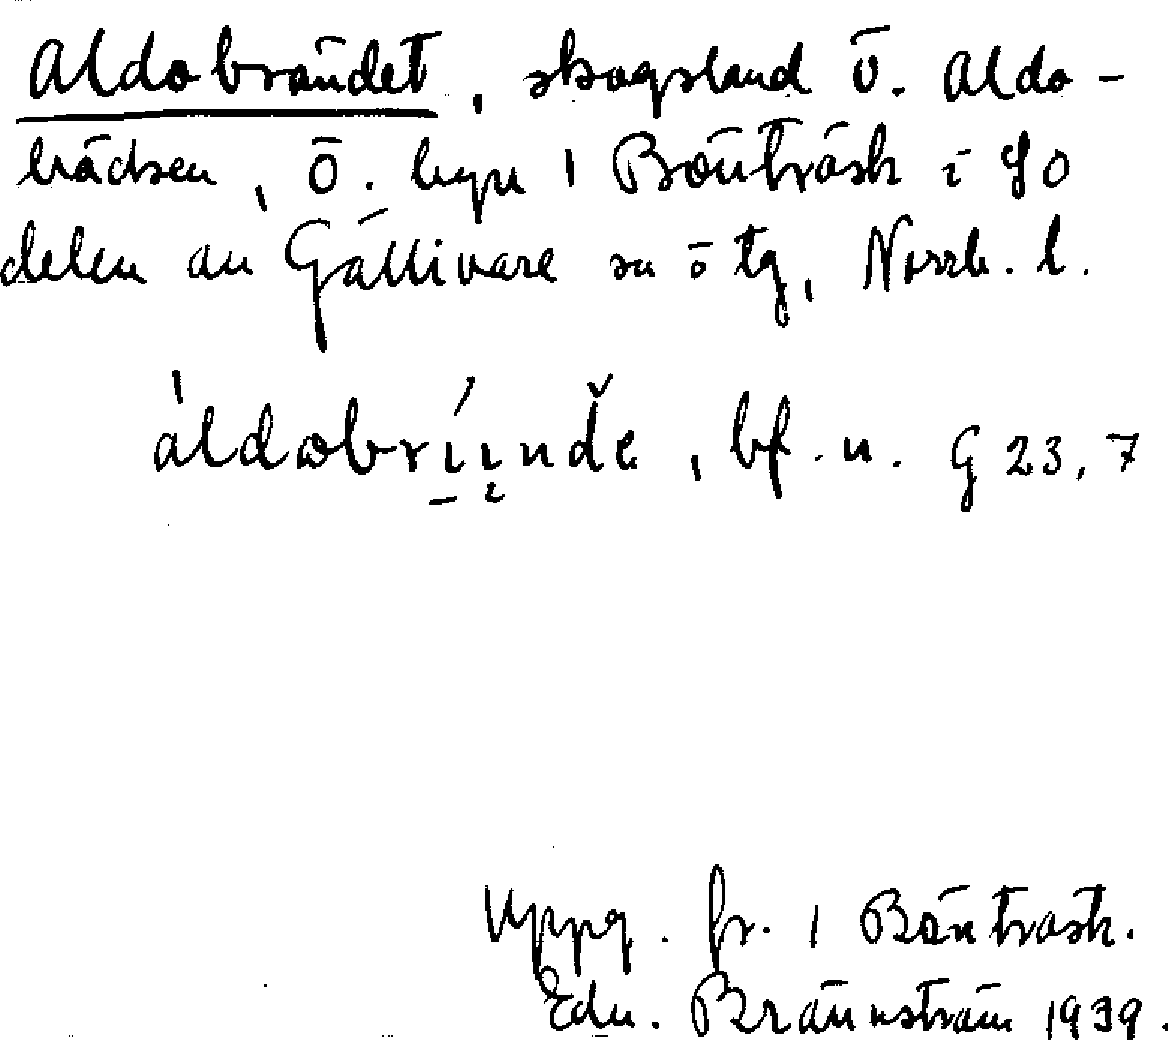 Aldobrändet, skogsland ö. Aldo-
bäcken, ö. byn 1 Bönträsk i SO
delen av Gällivare sn o tg, Norrb. l.
áldobrí̱ı̣ndĕ, bf. n. G 23,7
Uppg. fr. 1 Bönträsk.
Edv. Brännström 1939.